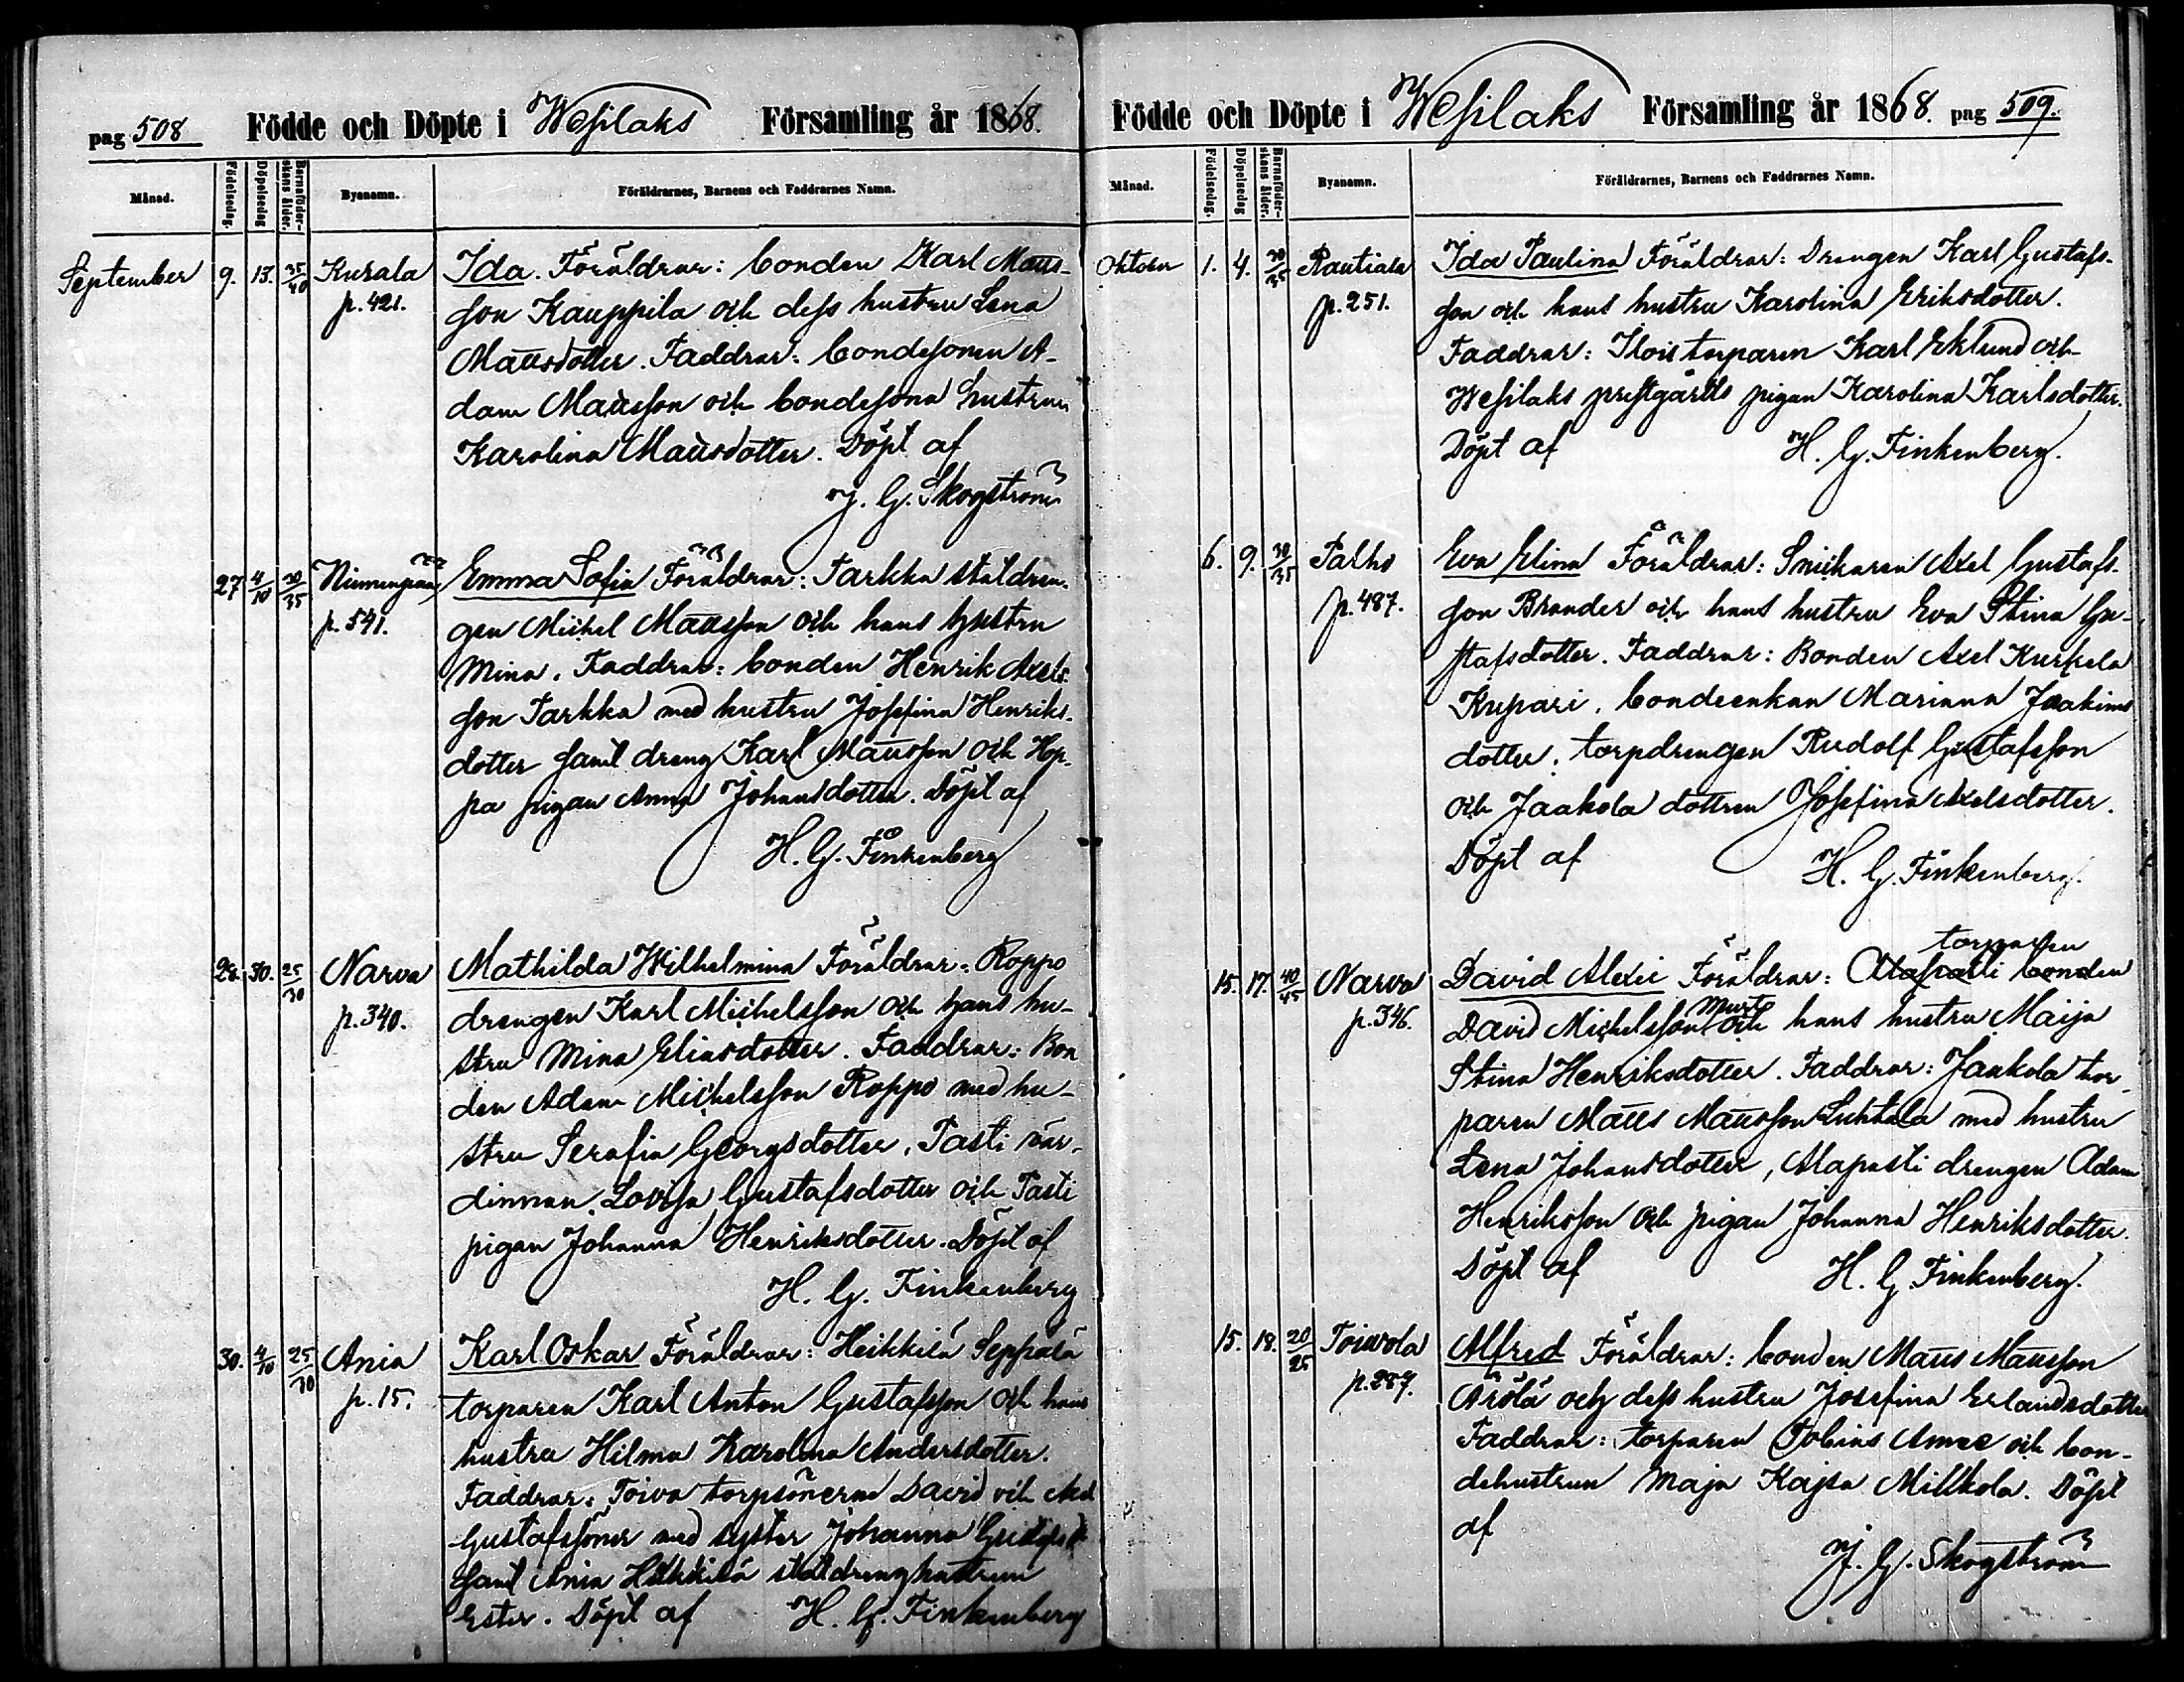 pag 508 Födde och Döpte i Wesilaks Församling år 1868.
Månad. Födelsedag. Döpelsedag Barnaföder-skans ålder. Byanamn. Föräldrarnes, Barnens och Faddrarnes Namn.
September 9. 13. 35/40 Kurala Ida. Föräldrar: bonden Karl Matts-
p. 421. son Kauppila och dess hustru Lena
Mattsdotter. Faddrar: bondesonen A-
dam Mattsson och bondesona hustrun
Karolina Mattsdotter. Döpt af
J. G. Skogström
27 4/10 30/35 Niemenpää Emma Sofia Föräldrar: Parkka staldren-
p. 541. gen Michel Mattsson och hans hustru
Mina. Faddrar: bonden Henrik Axels-
son Parkka med hustru Josefina Henriks-
dotter samt dreng Karl Mattsson och Hop-
pa pigan Anna Johansdotter. Döpt af
H. G. Finkenberg
28. 30. 25/30 Narva Mathilda Wilhelmina Föräldrar: Roppo
p. 340. drengen Karl Michelsson och hans hu-
stru Mina Eliasdotter. Faddrar: Bon
den Adam Michelsson Roppo med hu-
stru Serafia Georgsdotter, Pasti vär-
dinnan Lovisa Gustafsdotter och Pasti
pigan Johanna Henriksdotter. Döpt af
H. G. Finkenberg
30. 4/10 25/30 Ania Karl Oskar Föräldrar: Heikkilä Seppälä
p. 15. torparen Karl Anton Gustafsson och hans
hustru Hilma Karolina Andersdotter.
Faddrar: Toiva torpsönerna David och Axel
Gustafssöner med syster Johanna Gustafsd:r
samt Ania Heikkilä staldrenghustrun
Ester. Döpt af H. G. Finkenberg
Födde och Döpte i Wesilaks Församling år 1868. pag 509.
Månad. Födelsedag. Döpelsedag Barnaföder-skans ålder. Byanamn. Föräldrarnes, Barnens och Faddrarnes Namn.
Oktober 1. 4. 30/35 Rautiala Ida Paulina Föräldrar: Drengen Karl Gustafs-
p. 251. son och hans hustru Karolina Eriksdotter.
Faddrar: Ilois torparen Karl Eklund och
Wesilaks prestgårds pigan Karolina Karlsdotter.
Döpt af H. G. Finkenberg.
6. 9. 30/35 Palho Eva Elina Föräldrar: Snickaren Axel Gustafs-
p. 487. son Brander och hans hustru Eva Stina Gu-
stafsdotter. Faddrar: Bonden Axel Kurkela
Kupari, bondeenkan Marianna Joakims
dotter, torpdrengen Rudolf Gustafsson
och Jaakola dottren Josefina Axelsdotter.
Döpt af H. G. Finkenberg.
torparen
15. 17. 40/45 Narva David Alexis Föräldrar: Alapasti bonden
p. 346. David Michelsson Murto och hans hustru Maija
Stina Henriksdotter. Faddrar: Jaakola tor-
paren Matts Mattsson Luhtala med hustru
Lena Johansdotter, Alapasti drengen Adam
Henriksson och pigan Johanna Henriksdotter.
Döpt af H. G. Finkenberg.
15. 18. 20/25 Toivola Alfred Föräldrar: bonden Matts Mattsson
p. 287. Arölä och dess hustru Josefina Erlandsdotter
Faddrar: torparen Tobias och bon-
dehustrun Maja Kajsa Mikkola. Döpt
af
J. G. Skogström